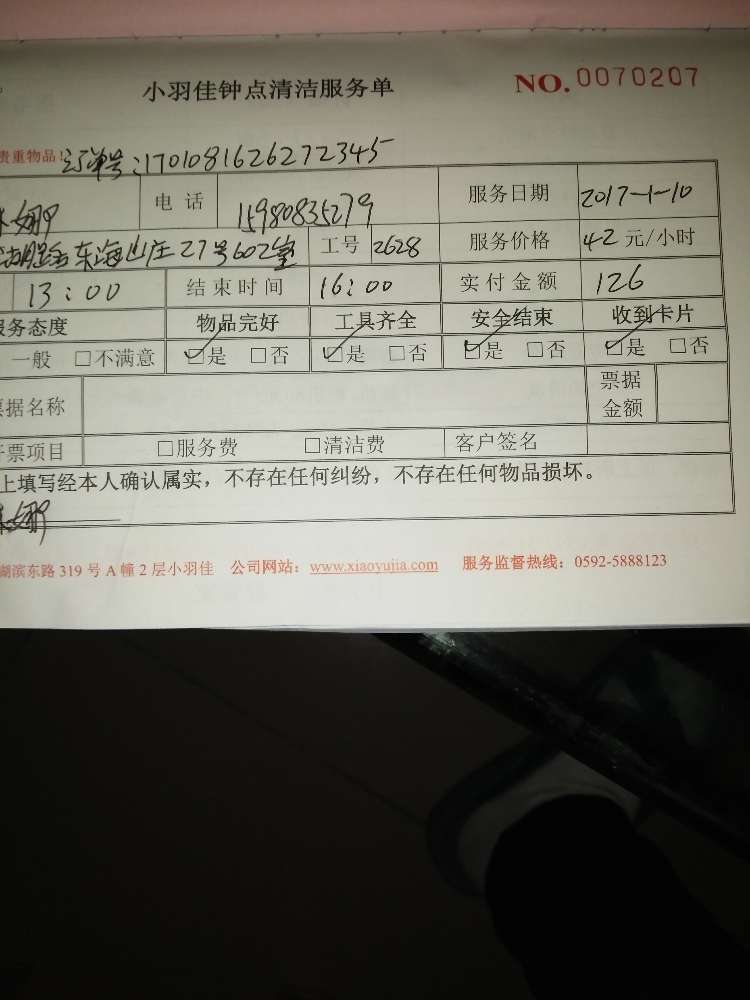 小羽佳钟点清洁服务单 NO. 0070207
贵重物品! 订单号:1701081626272345
娜 电 话 15980835279 服务日期 2017-1-10
东海山庄27号602室 工号 2628 服务价格 42 元/小时
13:00 结束时间 16:00 实付金额 126
服务态度 物品完好 工具齐全 安全结束 收到卡片
一般 □不满意 ☑是 □否 ☑是 □否 ☑是 □否 ☑是 □否
票据名称 票据金额
开票项目 □服务费 □清洁费 客户签名
上填写经本人确认属实，不存在任何纠纷，不存在任何物品损坏。
娜
湖滨东路 319 号 A 幢 2 层小羽佳 公司网站：www.xiaoyujia.com 服务监督热线：0592-5888123